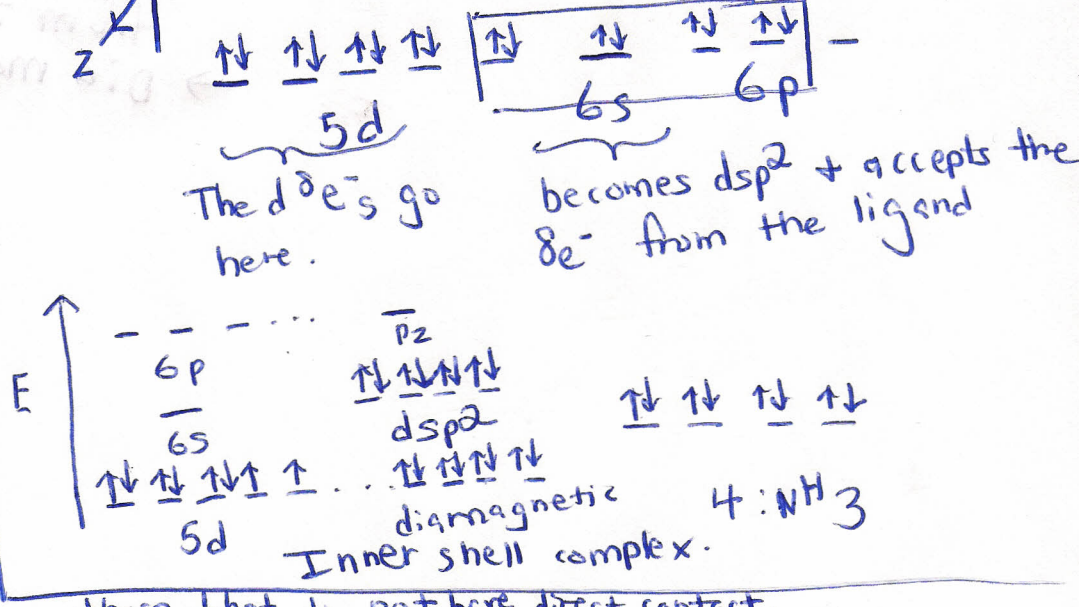 Z
↑↓ ↑↓ ↑↓ ↑↓ ↑↓ ↑↓ ↑↓ ↑↓ _
5d 6s 6p
The d⁸e⁻s go
here.
becomes dsp² + accepts the
8e⁻ from the ligand
E
_ _ _ ... _
6p pz
_ ↑↓ ↑↓ ↑↓ ↑↓ ↑↓ ↑↓ ↑↓ ↑↓
6s dsp2
↑↓ ↑↓ ↑↓ ↑ ↑ ... ↑↓ ↑↓ ↑↓ ↑↓
5d diamagnetic 4 :NH3
Inner shell complex.